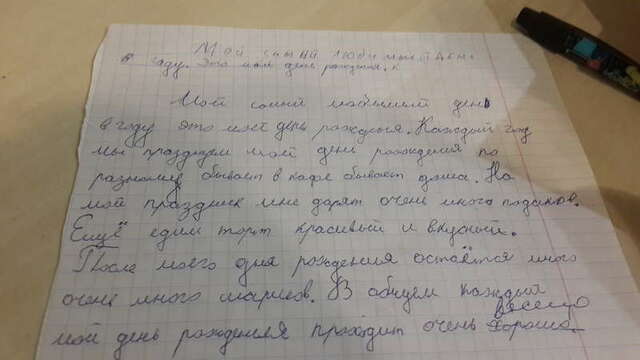 Мой самый любимый день
в году. Это мой день рождения. к
Мой самый любимый день
в году это мой день рождения. Каждый год
мы празднуем мой день рождения по
разному бывает в кафе бывает дома. На
мой праздник мне дарят очень много подарков.
Ещё едим торт красивый и вкусный.
После моего дня рождения остаётся много
очень много шариков. В общем каждый
весело
мой день рождения проходит очень хорошо.